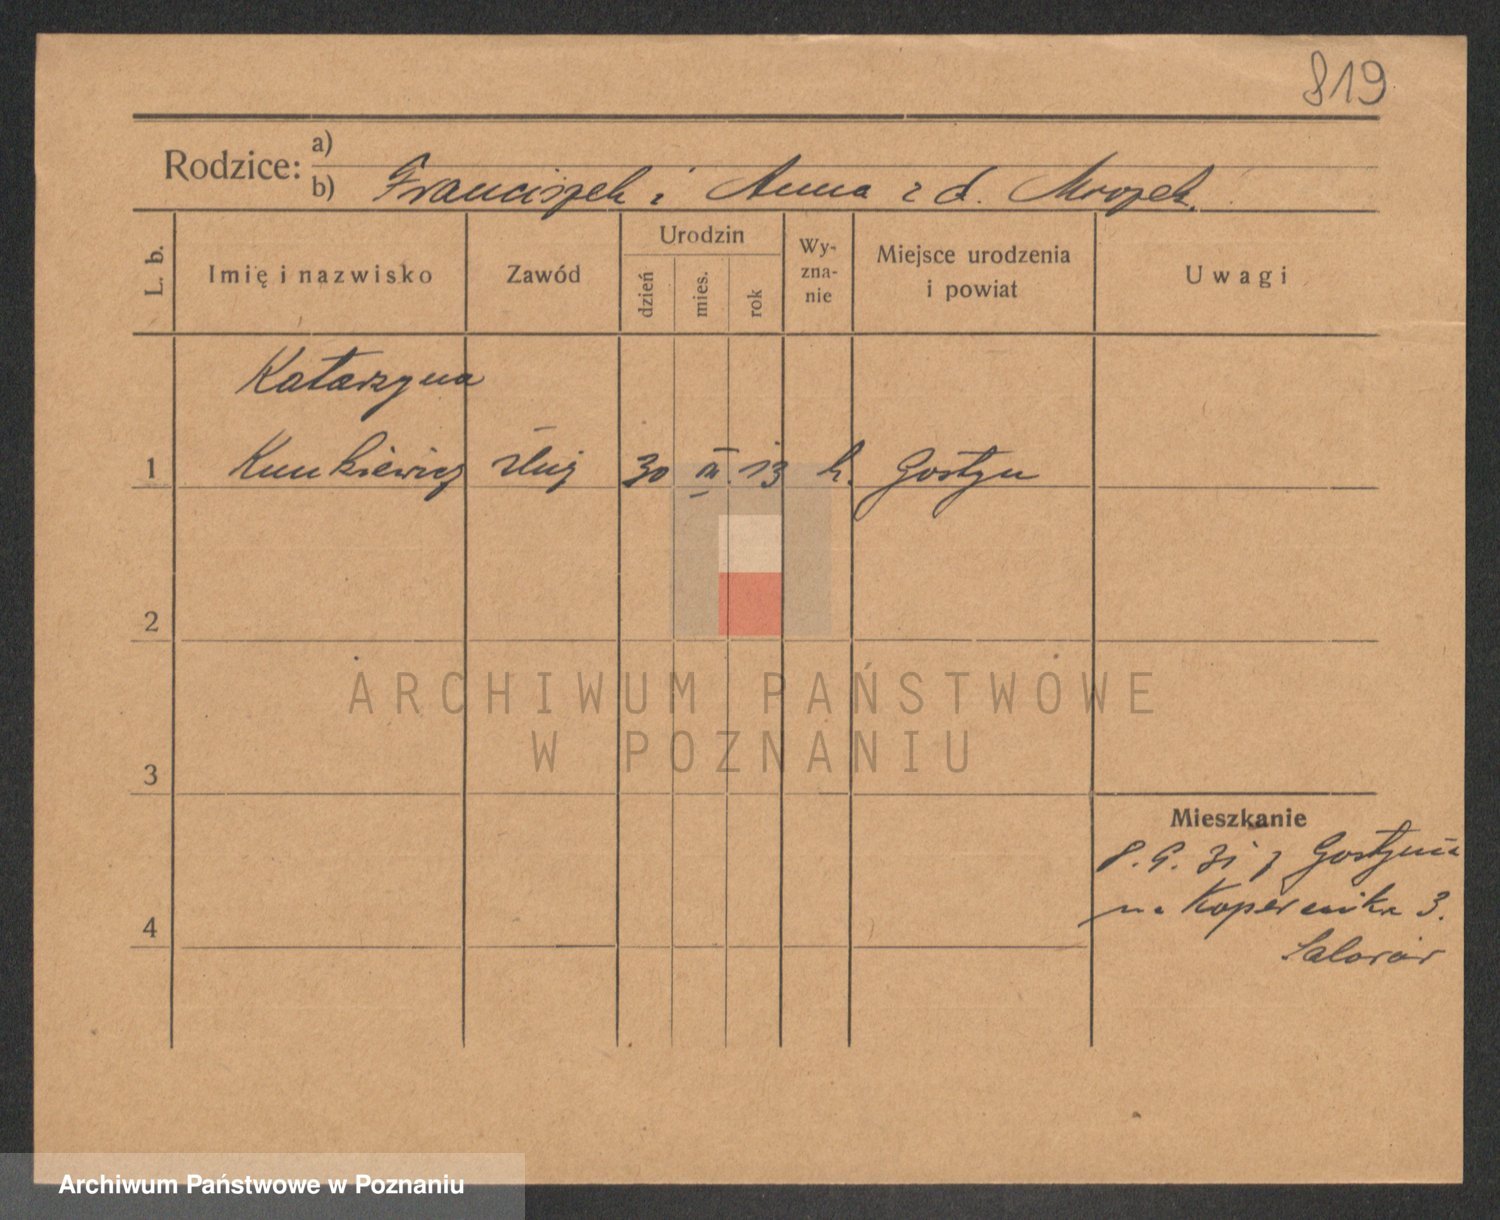 819
Rodzice:
a)
b) Franciszek i Anna z d. Mrozek.
L. b.
Imię i nazwisko
Zawód
Urodzin
dzień
mies.
rok
Wy-
zna-
nie
Miejsce urodzenia
i powiat
Uwagi
Katarzyna
1 Kunkiewicz służ 30 III 13 k. Gostyń
2
3
4
Mieszkanie
8. 9. 31 z Gostynia
na Kopernika 3.
ARCHIWUM PAŃSTWOWE
W POZNANIU
Archiwum Państwowe w Poznaniu